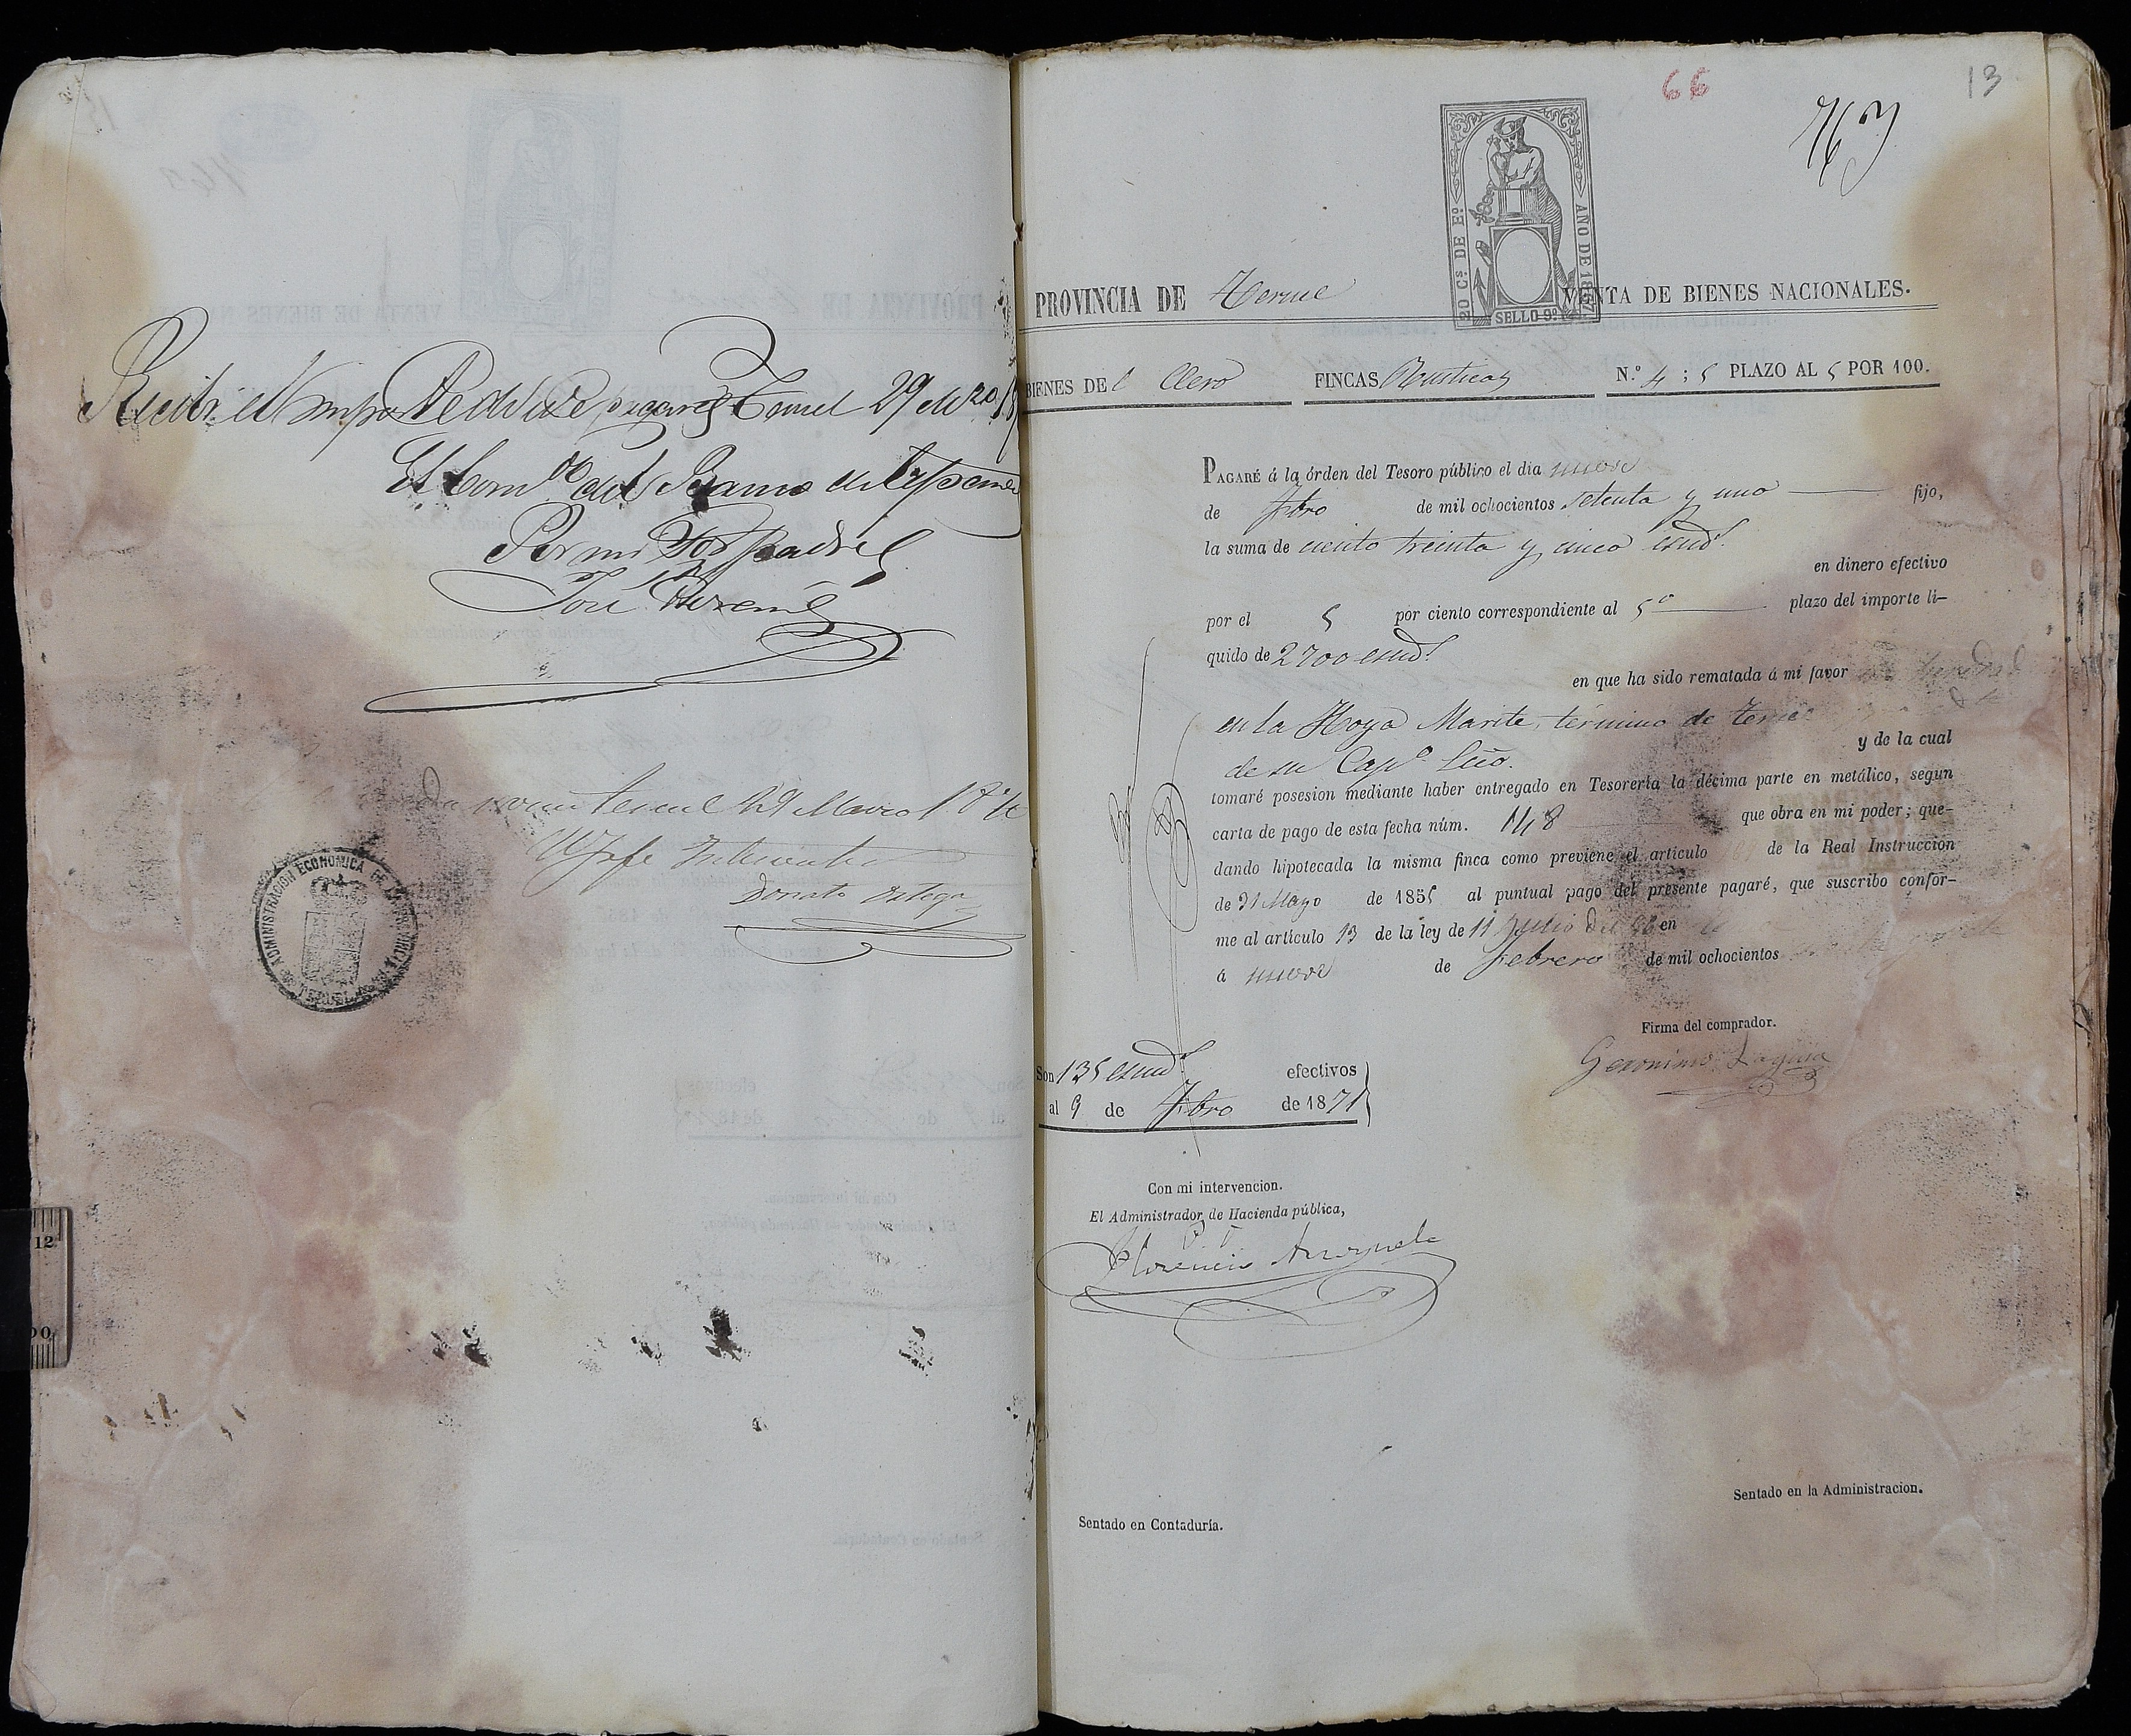 Recibi el Importe de este pagaré Teruel 29 Mzo 18
El Com.do del Banco de España
Por mi Sor Padre
José
Teruel 29 Marzo 187
El Jefe Interventor
Donato Ortega
ADMINISTRACION ECONOMICA DE LA PROVINCIA
TERUEL
66
13
763
20 Cs. DE Eo.
AÑO DE 1867
SELLO 9º
PROVINCIA DE Teruel
VENTA DE BIENES NACIONALES.
BIENES DEl Clero FINCAS Rusticas N.º 4; 5 PLAZO AL 5 POR 100.
PAGARÉ á la órden del Tesoro público el dia nueve
de Fbro de mil ochocientos setenta y uno fijo,
la suma de ciento treinta y cinco escuds.
en dinero efectivo
por el 5 por ciento correspondiente al 5º plazo del importe lí-
quido de 2700 escuds.
en que ha sido rematada á mi favor una heredad
en la Hoya Marite, termino de Teruel
y de la cual
de su Capo. Ecco.
tomaré posesion mediante haber entregado en Tesorería la décima parte en metálico, segun
carta de pago de esta fecha núm. 148 que obra en mi poder; que-
dando hipotecada la misma finca como previene el artículo de la Real Instruccion
de 31 Mayo de 1855 al puntual pago del presente pagaré, que suscribo confor-
me al artículo 13 de la ley de 11 Julio del 56 en
á nueve de Febrero de mil ochocientos
Firma del comprador.
Geronimo Laguia
Son 135 escuds. efectivos
al 9 de Fbro de 1871
Con mi intervencion.
El Administrador de Hacienda pública,
P. I.
Florencio
Sentado en la Administracion.
Sentado en Contaduría.